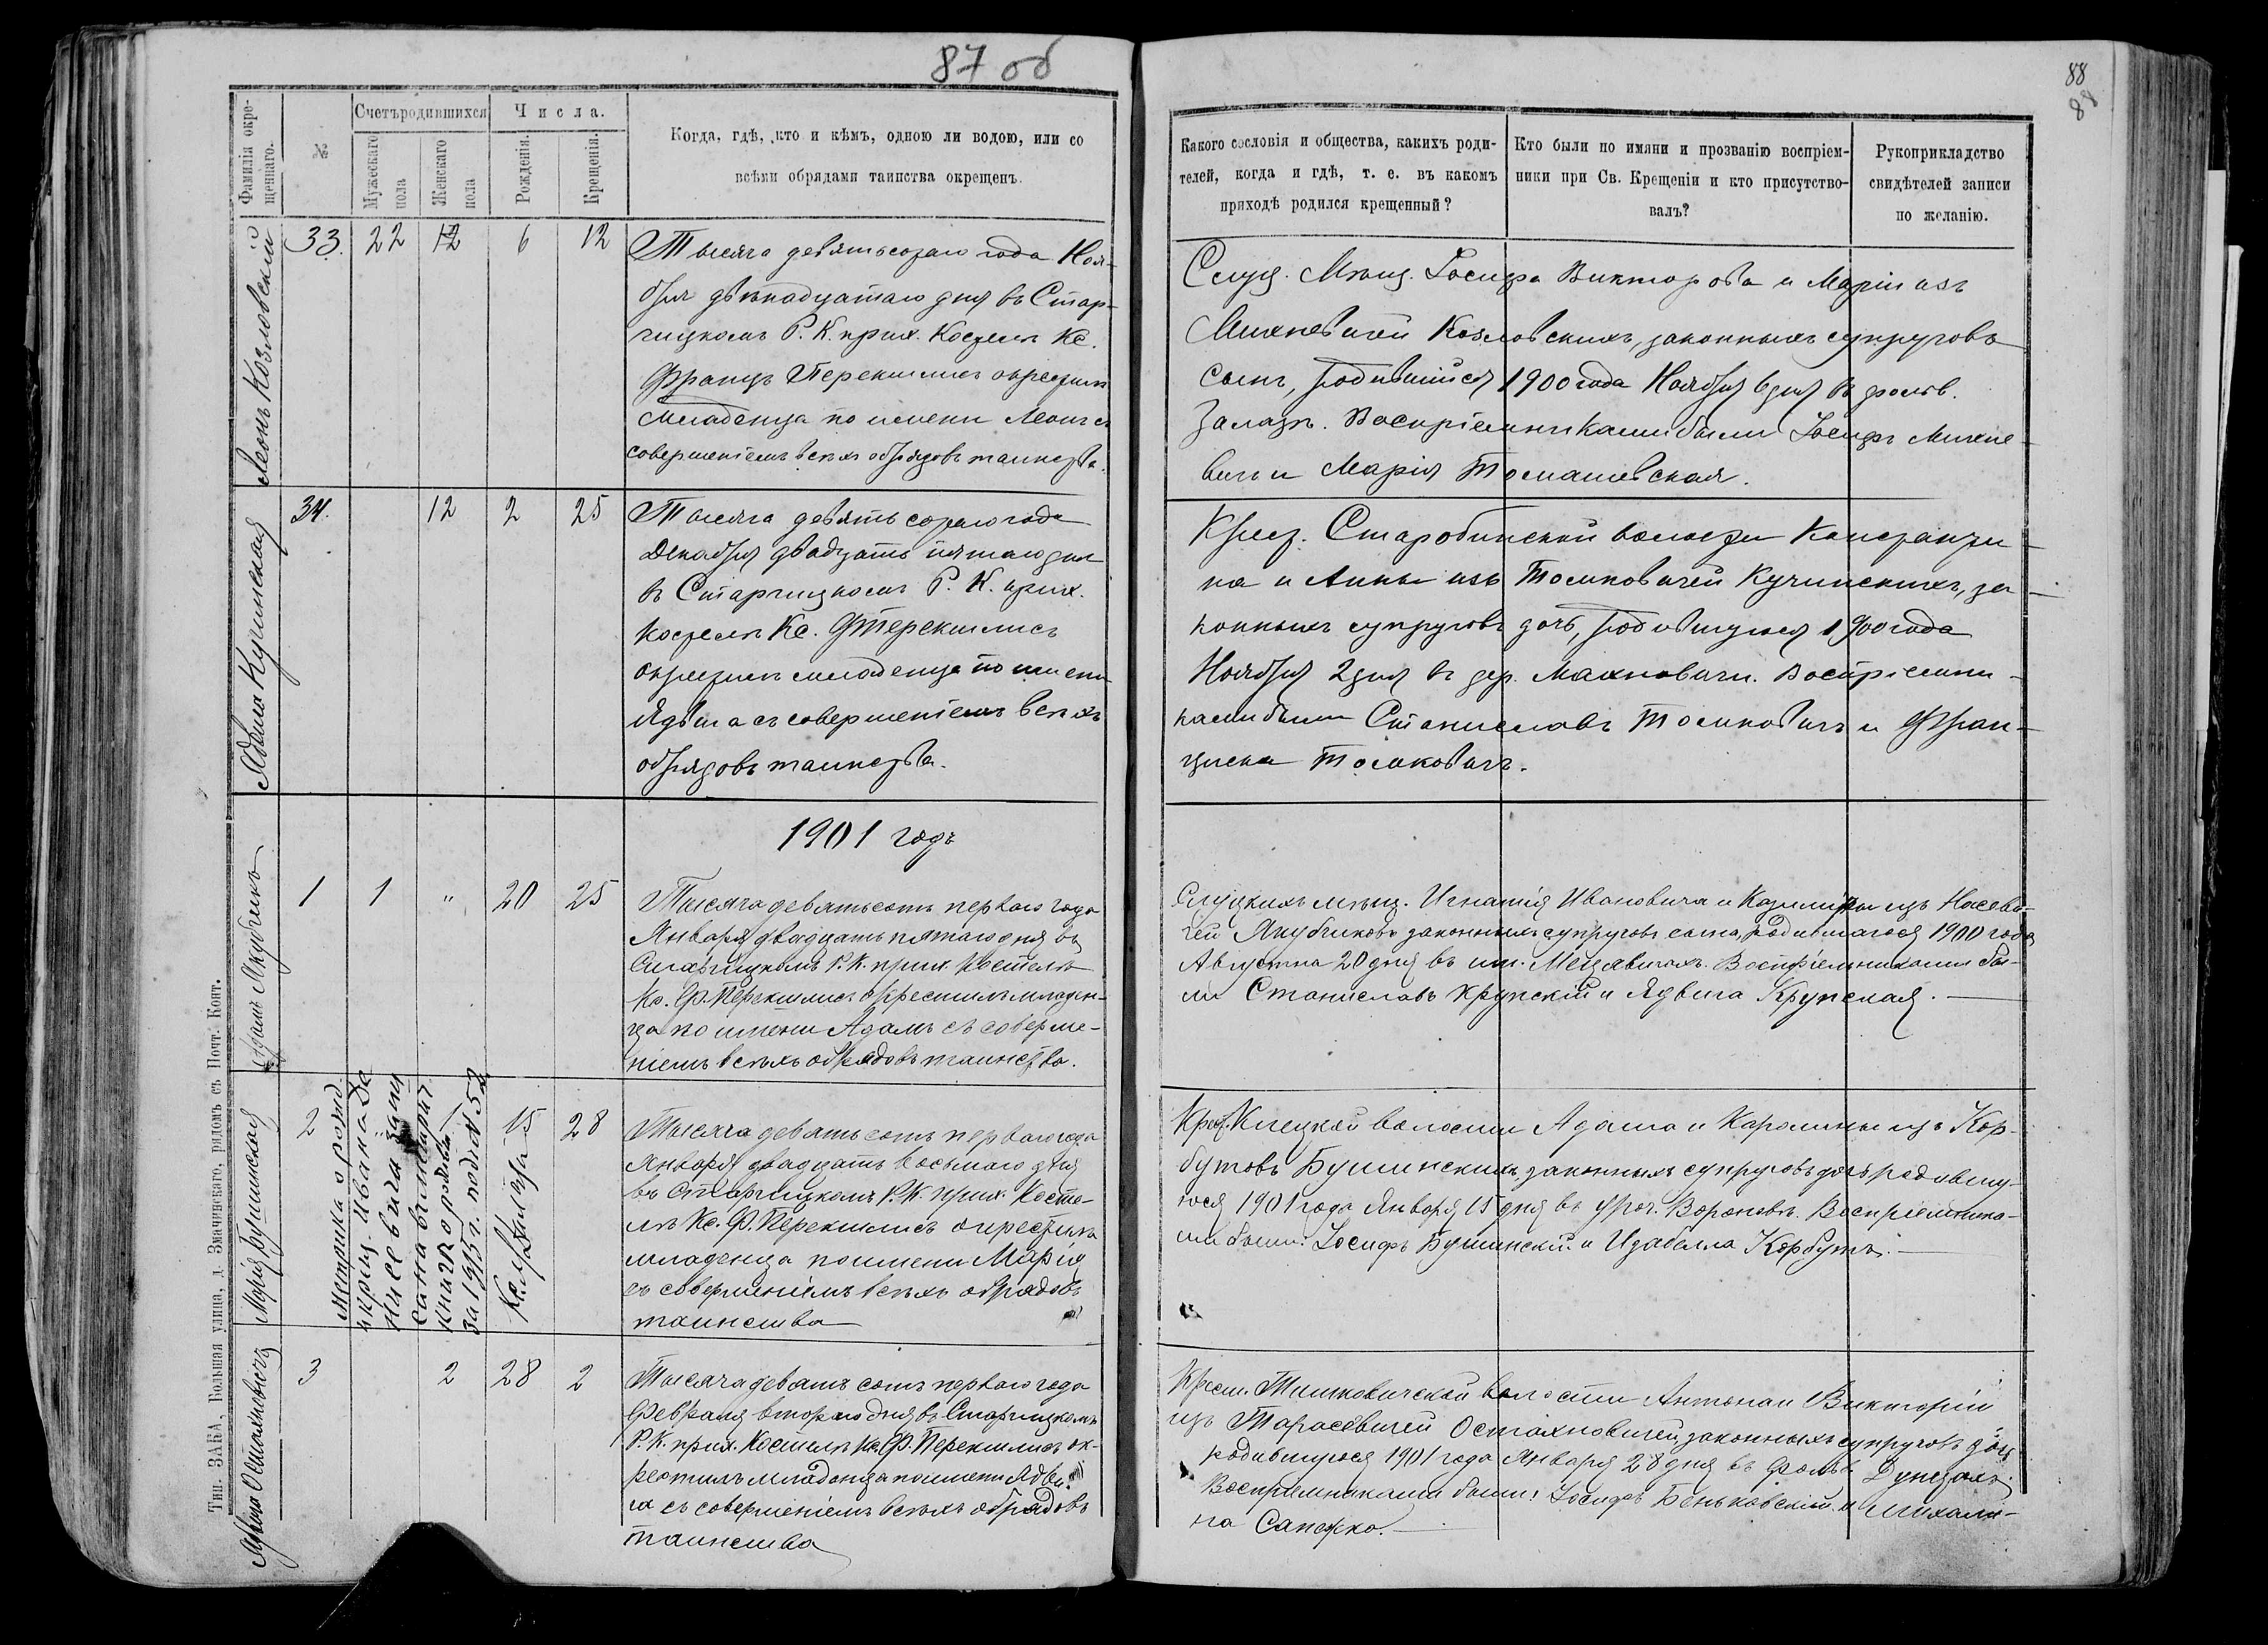 87 об
Фамилія окре-
щеннаго.
№
Счетъ родившихся
Мужескаго
пола
Женскаго
пола
Числа.
Рожденія.
Крещенія.
Когда, гдѣ, кто и кѣмъ, одною ли водою, или со
всѣми обрядами таинства окрещенъ.
Леонъ Козловскій
33. 22 12 6 12
Тысяча девятьсотаго года Ноя-
бря двѣнадцатаго дня въ Стар-
чицкомъ Р. К. прих. Костелѣ Кс.
Францъ Перекшлисъ окрестилъ
младенца по имени Леонъ съ
совершеніемъ всѣхъ обрядовъ таинства.
Ядвига Кучинская
34. 12 2 25
Тысяча девятьсотаго года
Декабря двадцать пятаго дня
въ Старчицкомъ Р. К. прих.
Костелѣ Кс. Ф Перекшлисъ
окрестилъ младенца по имени
Ядвига съ совершеніемъ всѣхъ
обрядовъ таинства.
1901 годъ
Адамъ Якубчикъ
1 1 " 20 25
Тысяча девятьсотъ перваго года
Января двадцать пятаго дня въ
Старчицкомъ Р. К. прих. Костелѣ
Кс. Ф. Перекшлисъ окрестилъ младен-
ца по имени Адамъ съ соверше-
ніемъ всѣхъ обрядовъ таинства.
Марія Бушинская
2 15 28
Метрика о рожд.
и крещ. Ивана Да
за 1915 г. под № 52
Тысяча девятьсотъ перваго года
Января двадцать восьмаго дня
въ Старчицкомъ Р. К. прих. Косте-
лѣ Кс. Ф. Перекшлисъ окрестилъ
младенца по имени Марія
съ совершеніемъ всѣхъ обрядовъ
таинства
Остахневичъ
3 2 28 2
Тысяча девятьсотъ перваго года
Февраля втораго дня въ Старчицкомъ
Р. К. прих. Костелѣ Кс. Ф. Перекшлисъ ок-
рестилъ младенца по имени Ядви-
га съ совершеніемъ всѣхъ обрядовъ
таинства
Тип. ЗАКА, Большая улица, д. Змачинскаго, рядомъ съ Почт. Конт.
88
88
Какого сословія и общества, какихъ роди-
телей, когда и гдѣ, т. е. въ какомъ
приходѣ родился крещенный?
Кто были по имяни и прозванію воспріем-
ники при Св. Крещеніи и кто присутство-
валъ?
Рукоприкладство
свидѣтелей записи
по желанію.
Слуц. Мѣщ. Іосифа Викторова и Маріи изъ
Михневичей Козловскихъ, законныхъ супруговъ
сынъ, родившійся 1900 года Ноября 6 дня въ фольв.
Залазъ. Воспріемниками были Іосифъ Михне-
вичъ и Марія Томашевская.
Крест. Старобинской волости Константи-
на и Анны изъ Томковичей Кучинскихъ, за-
конныхъ супруговъ дочь, родившуюся 1900 года
Ноября 2 дня въ дер. Махновичи. Воспріемни-
ками были Станиславъ Томковичъ и Фран-
циска Томковичъ.
Слуцкихъ мѣщ. Игнатія Ивановича и Казимиры изъ Насеви-
чей Якубчиковъ законныхъ супруговъ сына, родившагося 1900 года
Августа 20 дня въ им. Мецявичахъ. Воспріемниками бы-
ли Станиславъ Крупскій и Ядвига Крупская.
Крест. Клецкой волости Адама и Каролины изъ Кор-
бутовъ Бушинскихъ, законныхъ супруговъ дочь родившу-
юся 1901 года Января 15 дня въ уроч. Вороновъ. Воспріемника-
ми были: Іосифъ Бушинскій и Изабелла Корбутъ.
Крест. Тимковичской волости Антона и Викторіи
изъ Тарасевичей Остахновичей, законныхъ супруговъ дочь
родившуюся 1901 года Января 28 дня въ фольв. Дунцахъ.
Воспріемниками были: Іосифъ Беньковскій и Михали-
на Сапежко.